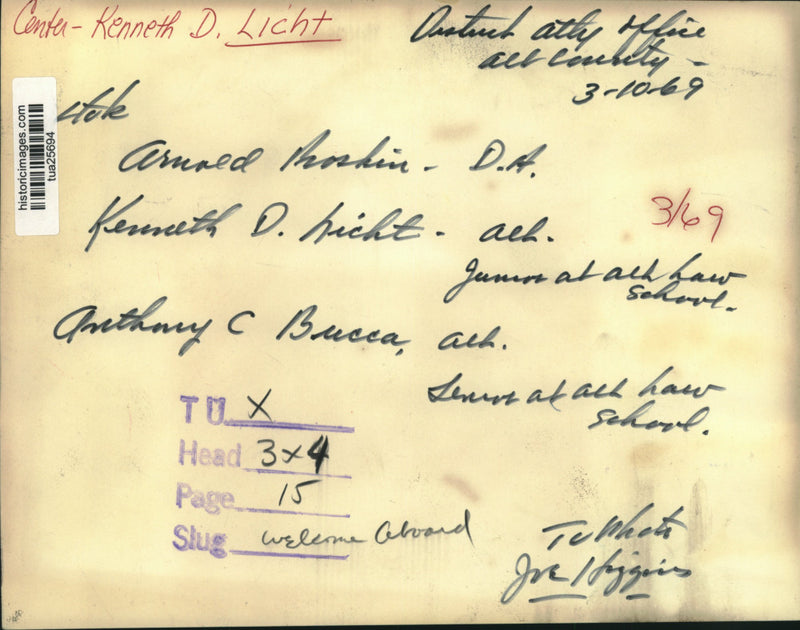 Center - Kenneth D. Licht
District atty office
alb County -
3-10-69
historicimages.com
tua25694
Arnold Proskin - D.A.
Kenneth D. Licht - alb.
3/69
Junior at alb Law
School.
Anthony C Bucca, alb.
Senior at alb Law
School.
TU X
Head 3x4
Page 15
Slug welcome aboard
TU Photo
Joe Higgins